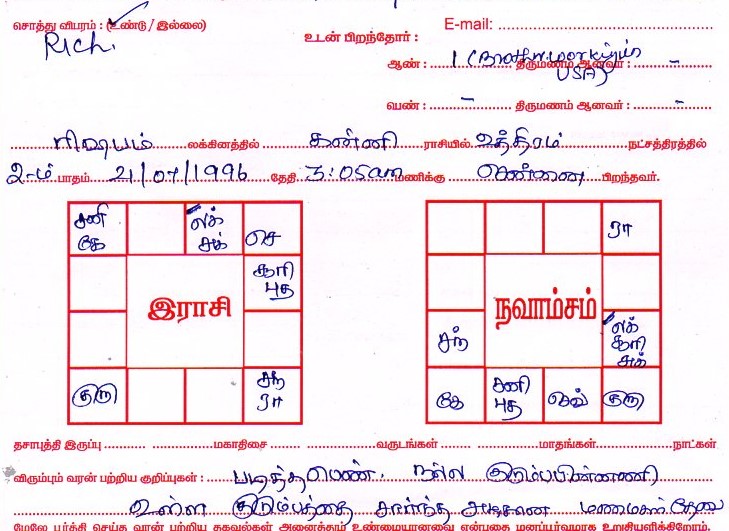 சொத்து விபரம் : (உண்டு / இல்லை)
Rich.
E-mail:
உடன் பிறந்தோர் :
ஆண் : 1 (Brother working in USA) திருமணம் ஆனவர் : -
பெண் : - திருமணம் ஆனவர் : -
ரிஷபம் லக்கினத்தில் கன்னி ராசியில் உத்திரம் நட்சத்திரத்தில்
2-ம் பாதம் 21/07/1996 தேதி 3:05am மணிக்கு சென்னை பிறந்தவர்.
சனி கே
லக் சுக்
செ
சூரி புத
இராசி
குரு
சந் ரா
ரா
நவாம்சம்
சந்
லக் சூரி சுக்
கே
சனி புத
செவ்
குரு
தசாபுத்தி இருப்பு மகாதிசை வருடங்கள் மாதங்கள் நாட்கள்
விரும்பும் வரன் பற்றிய குறிப்புகள் : படித்த பெண். நல்ல குடும்பபின்னணி
உள்ள குடும்பத்தை சார்ந்த அழகான மணமகள் தேவை
மேலே பூர்த்தி செய்த வரன் பற்றிய தகவல்கள் அனைத்தும் உண்மையானவை என்பதை மனப்பூர்வமாக உறுதியளிக்கிறேன்.